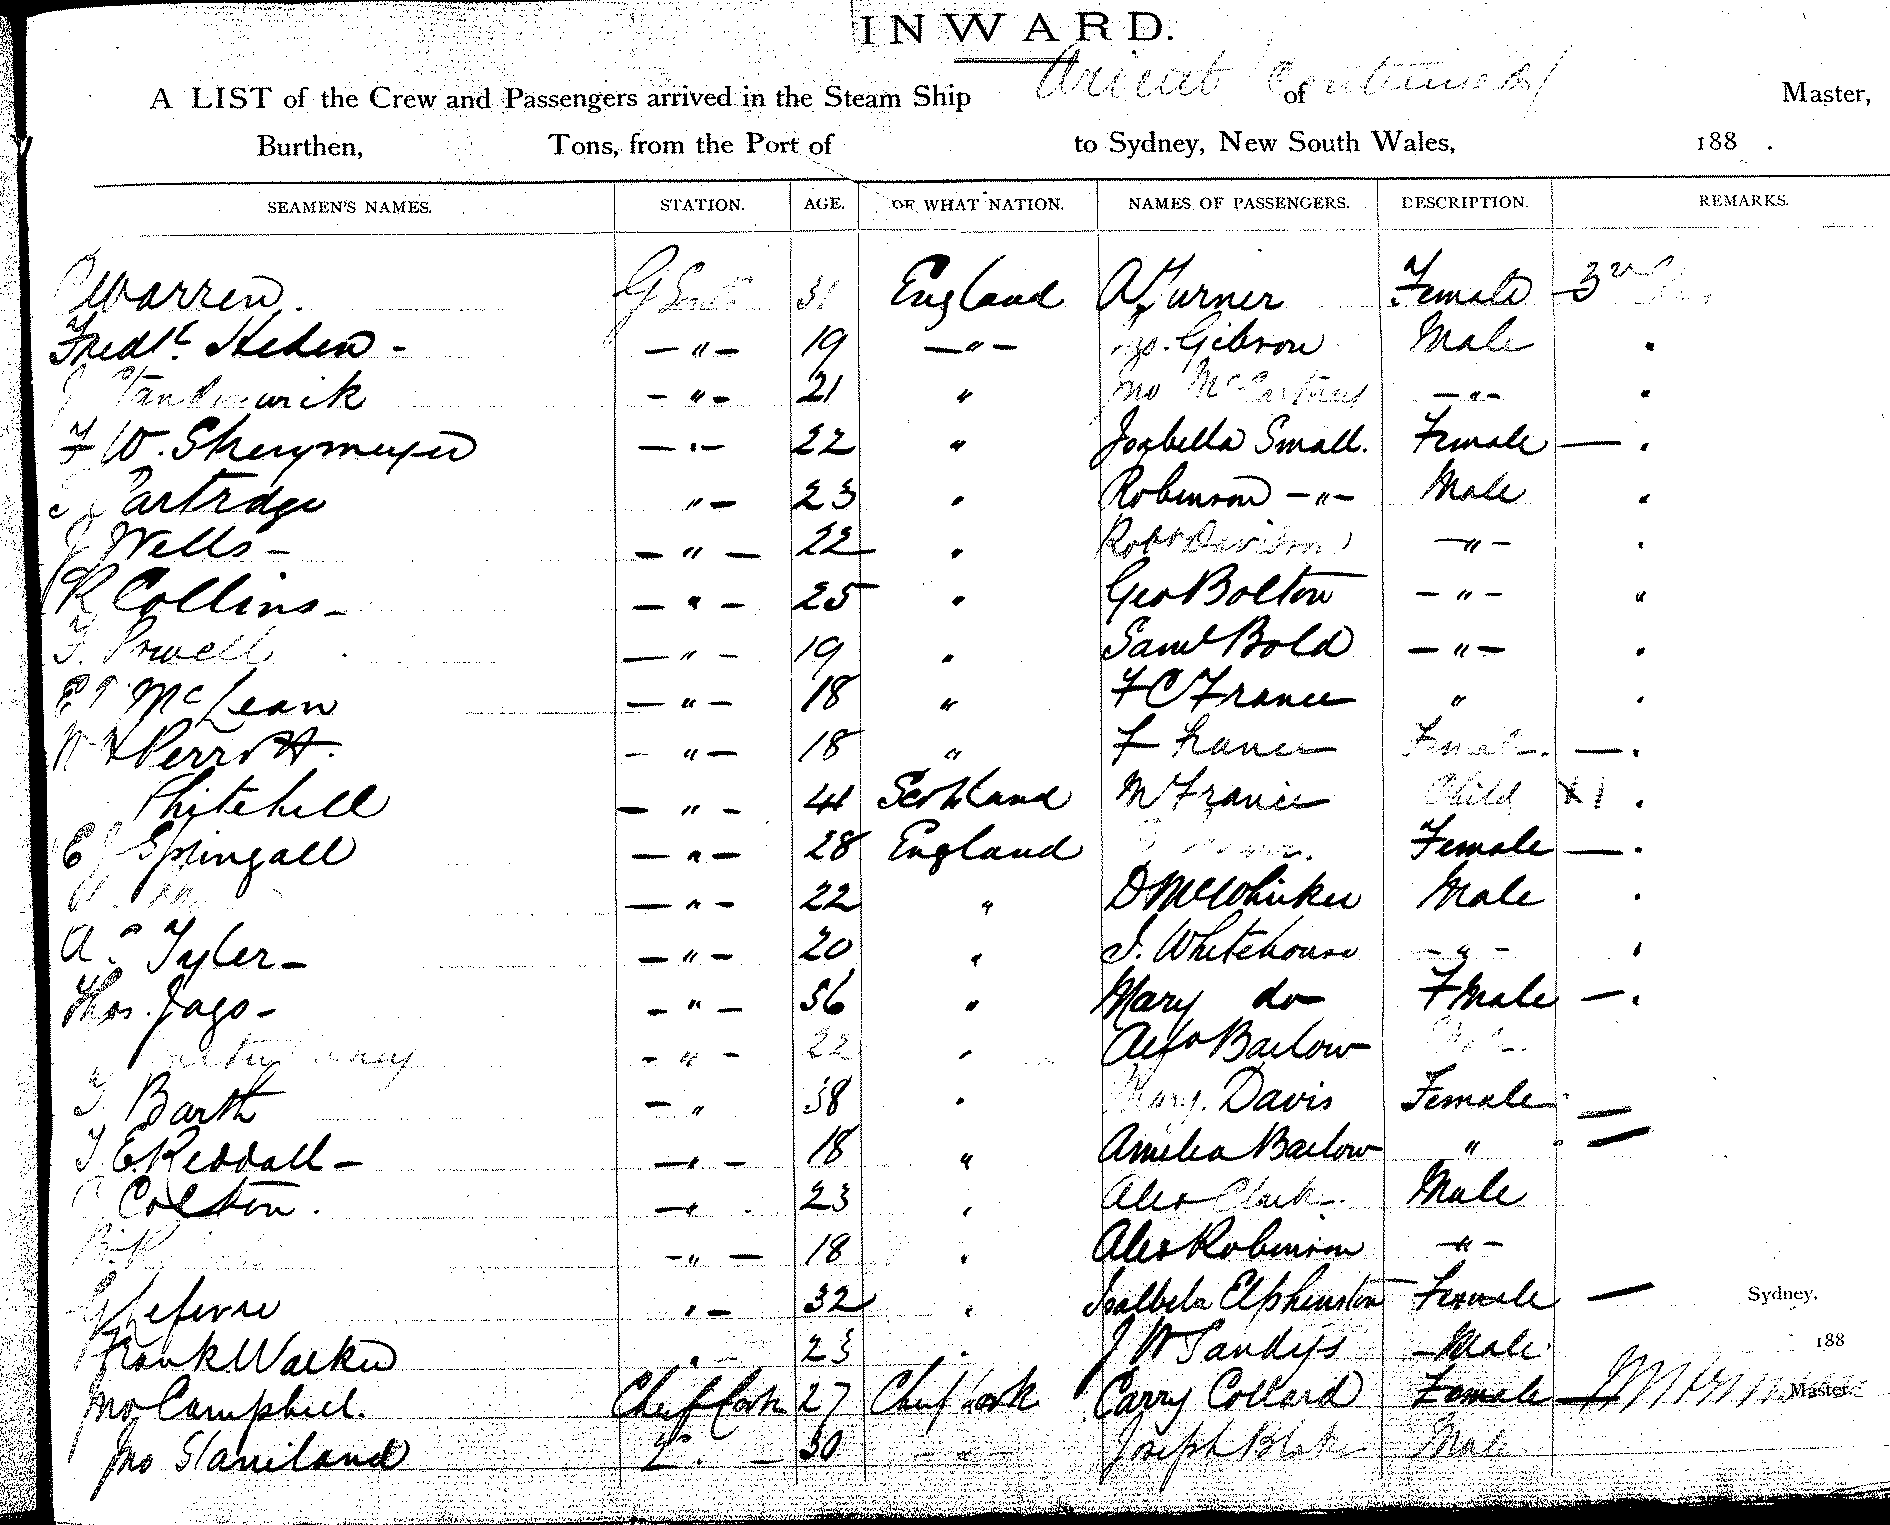 INWARD.
A LIST of the Crew and Passengers arrived in the Steam Ship Orient of Continued Master,
Burthen, Tons, from the Port of to Sydney, New South Wales, 188 .
SEAMEN'S NAMES. STATION. AGE. OF WHAT NATION. NAMES OF PASSENGERS. DESCRIPTION. REMARKS.
Warren. 31 England A Turner Female 3rd
Fredk. - — " — 19 — " — Gibson Male "
— " — 21 " Jno McCartney — " — "
F W. — " — 22 " Isabella Small. Female — "
Partrdge " — 23 " Robinson — " — Male "
J Wells - — " — 22 " Robt Davidson — " — "
R Collins - — " — 25 " Geo Bolton — " — "
F. Powell — " — 19 " Saml Bold — " — "
McLean — " — 18 " F C France " "
Perrott. — " — 18 " F France Female. — "
Whitehill — " — 41 Scotland M France Child 1 "
E J Springall — " — 28 England Female — "
— " — 22 " D McWhirker Male "
A. Tyler - — " — 20 " J. Whitehouse — " — "
Thos. Jago - — " — 56 " Mary do Fmale — "
— " — 22 " Barlow
Barth — " 38 " Mary. Davis Female —
T E Reddall - — " — 18 " Amelia Barlow " —
Colston. — " 23 " Alex Clark. Male
— " — 18 " Alex Robinson — " —
G Lefevre " — 32 " Isalbela Elphinston Female — Sydney,
Frank Walker " 23 " J W Sandys Male. 188
Jno Campbell. Chief Cook 27 Chief Cook Carry Collard Female — Master.
Jno Staniland 30 — " — Joseph Male